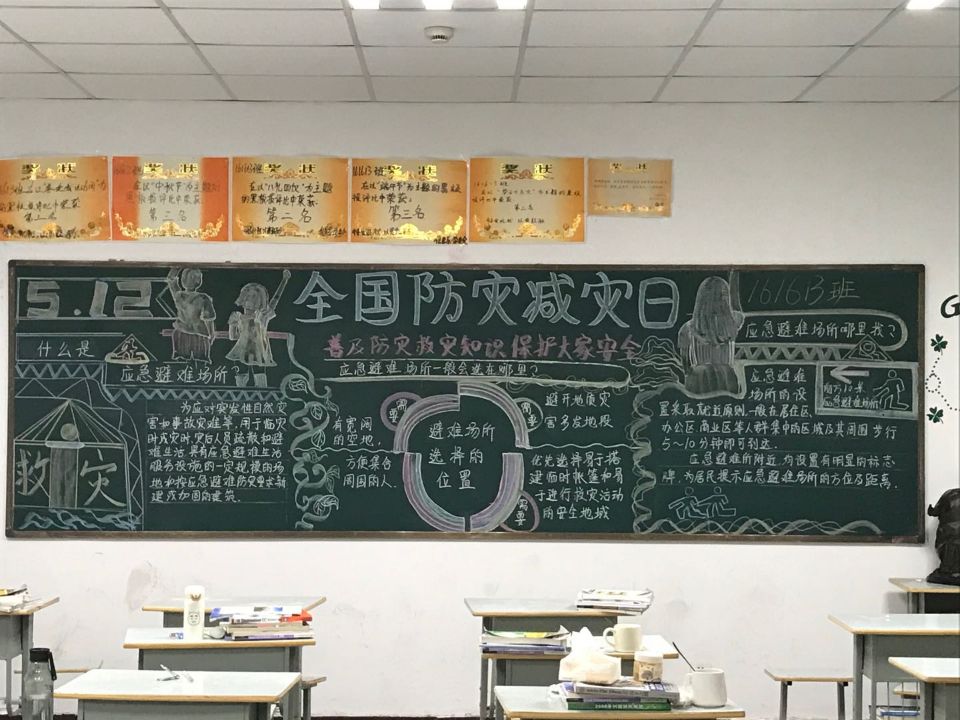 奖状
奖状
在以"中秋节"为主题的
黑板报评比中荣获
第二名
奖状
的黑板报评比中荣获
第二名
奖状
在以"端午节"为主题的黑板
报评比中荣获
第三名
奖状
奖状
5.12
全国防灾减灾日
1616B班
普及防灾救灾知识 保护大家安全
什么是
应急避难场所?
为应对突发性自然灾
害如事故灾难等,用于临灾
时或灾时,灾后人员疏散和避
难生活,具有应急避难生活
服务设施的一定规模的场
地和按应急避难防灾要求新
建或加固的建筑。
救灾
应急避难场所一般会选在哪里?
需要
有宽阔
的空地,
方便集合
周围的人.
避难场所
选择的
位置
需要
避开地质灾
害多发地段
优先选择易于搭
建临时帐篷和易
于进行救灾活动
的安全地域
需要
应急避难场所哪里找?
应急避难
场所的设
置采取就近原则,一般在居住区、
办公区、商业区等人群集中的区域及其周围步行
5~10分钟即可到达.
应急避难所附近,均设置有明显的标志
牌,为居民提示应急避难场所的方位及距离.
前方10米
应急避难所
G